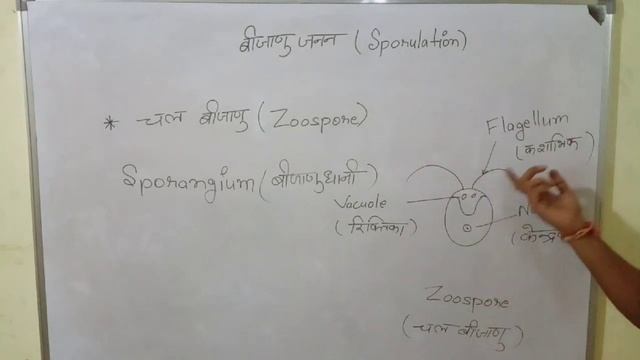 बीजाणु जनन (Sporulation)
* चल बीजाणु (Zoospore)
Sporangium (बीजाणुधानी)
Flagellum
(कशाभिक)
Vacuole
(रिक्तिका)
Zoospore
(चल बीजाणु)